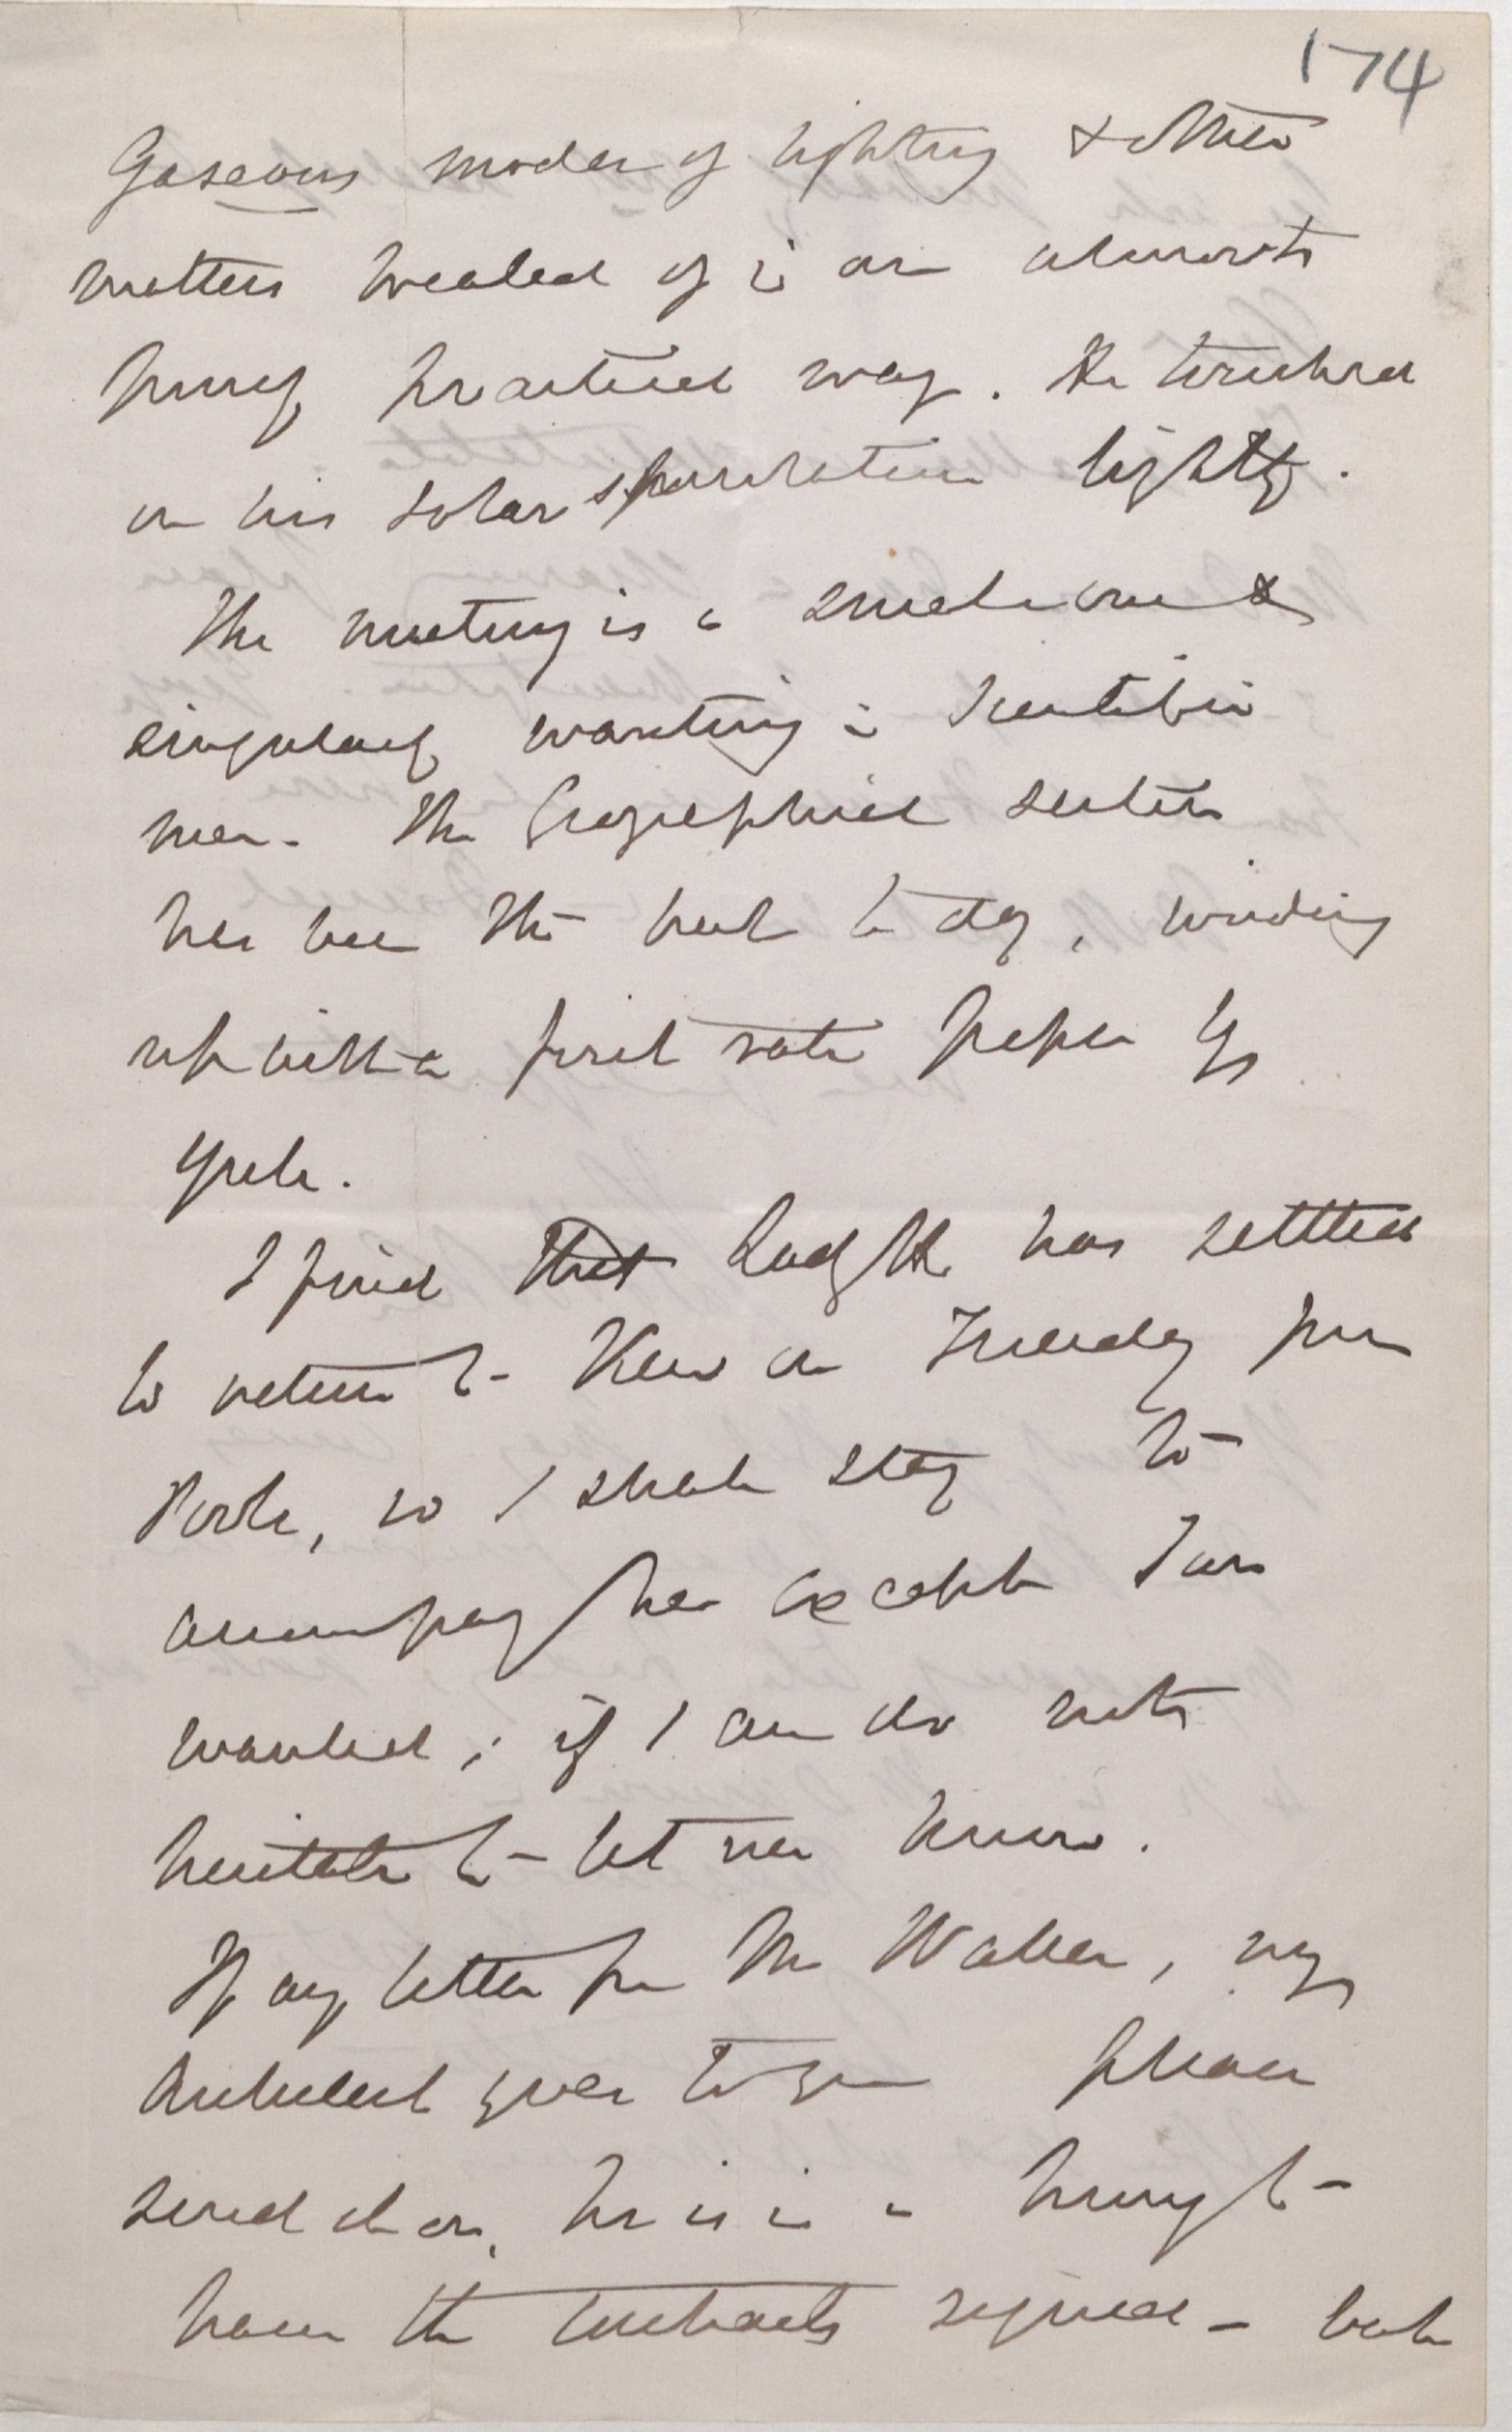 174
Gaseous modes of lighting & other
matters treated of in an almost
purely practical way. He touched
on his solar speculation lightly.
The meeting is a small one &
singularly wanting in Scientific
men. The Geographical section
has been the best to day, winding
up with a first rate paper by
Yule.
I find that Lady H. has settled
to return to Kew on Tuesday from
, so I shall stay to
accompany her except I am
wanted; if I am do not
hesitate to let me know.
If any letter from Mr Waller, my
Architect goes to you please
send it on, he is in a hurry to
have the contracts signed — but